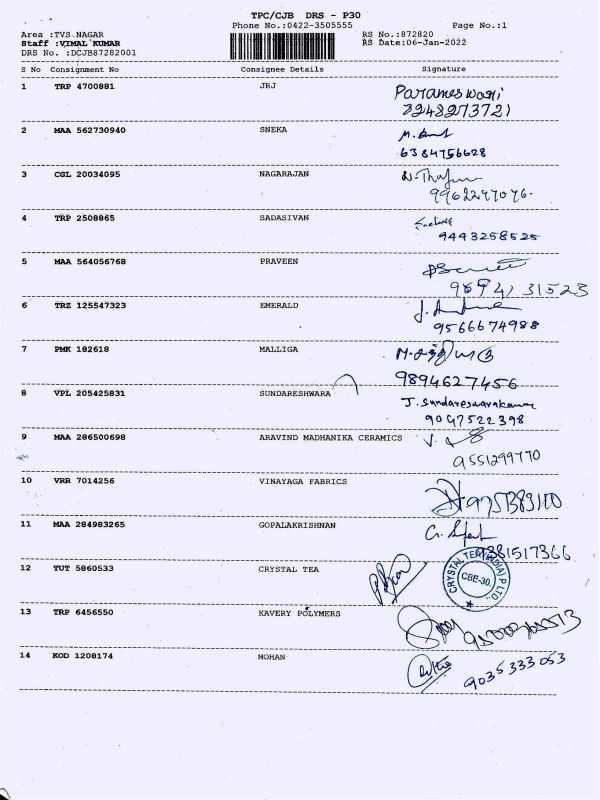 TPC/CJB DRS - P30
Phone No.:0422-3505555
Page No.:1
Area :TVS NAGAR
RS No.:872820
Staff :VIMAL KUMAR
RS Date:06-Jan-2022
DRS No. :DCJB87282001
S No Consignment No Consignee Details Signature
1 TRP 4700881 JRJ Parameswari
8248273721
2 MAA 562730940 SNEKA
6384756628
3 CGL 20034095 NAGARAJAN
9962247076.
4 TRP 2508865 SADASIVAN
9443258525
5 MAA 564056768 PRAVEEN
31523
6 TRZ 125547323 EMERALD
9566674988
7 PMK 182618 MALLIGA
9894627456
8 VPL 205425831 SUNDARESHWARA J. Sundareswarakumar
9047522398
9 MAA 286500698 ARAVIND MADHANIKA CERAMICS
9551299770
10 VRR 7014256 VINAYAGA FABRICS
11 MAA 284983265 GOPALAKRISHNAN
9381517366
12 TUT 5860533 CRYSTAL TEA
CRYSTAL TEA (INDIA) P LTD
CBE-30.
13 TRP 6456550 KAVERY POLYMERS
14 KOD 1208174 MOHAN
9035333053